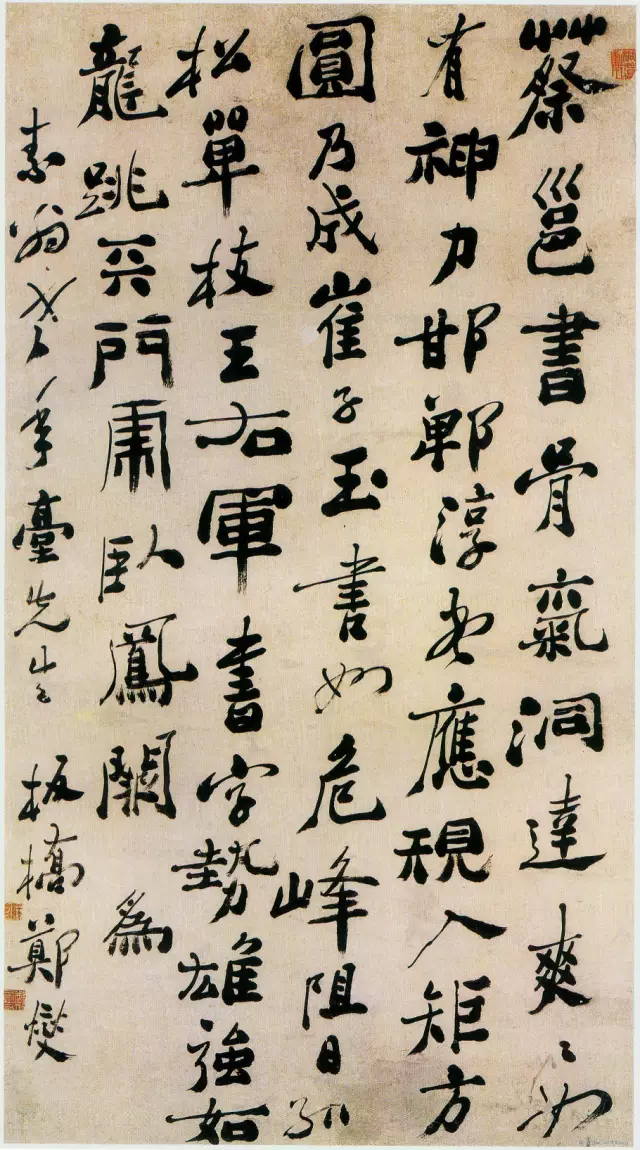 蔡邕書骨氣洞達爽爽如
有神力邯鄲淳書應規入矩方
圓乃成崔子玉書如危峰阻日孤
松單枝王右軍書字勢雄強如
龍跳天門虎臥鳳闕為
素翁老年臺先生板橋鄭燮